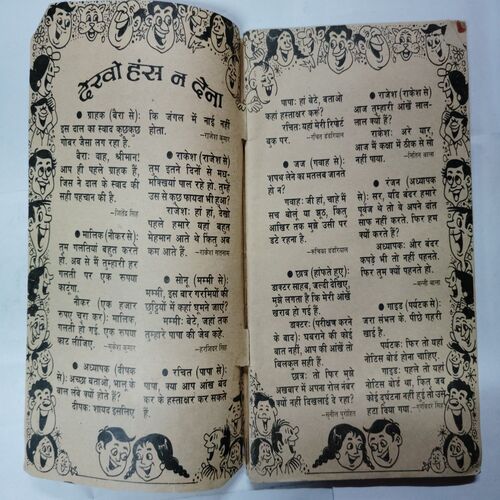 देखो हंस न देना
● ग्राहक (बैरा से):
इस दाल का स्वाद कुछकुछ
गोबर जैसा लग रहा है.
बैरा: वाह, श्रीमान!
आप ही पहले ग्राहक हैं,
जिस ने दाल के स्वाद की
सही पहचान की है.
—जितेंद्र सिंह
● मालिक (नौकर से):
तुम गलतियां बहुत करते
हो. अब से मैं तुम्हारी हर
गलती पर एक रुपया
काटूंगा.
नौकर (एक हजार
रुपए चुरा कर): मालिक,
गलती हो गई. एक रुपया
काट लीजिए.
—मुकेश कुमार
● अध्यापक (दीपक
से): अच्छा बताओ, भालू के
बाल लंबे क्यों होते हैं?
दीपक: शायद इसलिए
कि जंगल में नाई नहीं
होता.
—राजेश कुमार
● राकेश (राजेश से):
तुम इतने दिनों से मधु-
मक्खियां पाल रहे हो. तुम्हें
उस से कुछ फायदा भी हुआ?
राजेश: हां हां, देखो
पहले हमारे यहां बहुत
मेहमान आते थे किंतु अब
कम आते हैं.
—राकेश
● सोनू (मम्मी से):
मम्मी, इस बार गरमियों की
छुट्टियों में कहां घूमने जाएं?
मम्मी: बेटे, जहां तक
तुम्हारे पापा की जेब कहे.
—हरजिंदर सिंह
● रचित (पापा से):
पापा, क्या आप आंख बंद
कर के हस्ताक्षर कर सकते
हैं?
पापा: हां बेटे, बताओ
कहां हस्ताक्षर करूं?
रचित: यहां मेरी रिपोर्ट
बुक पर.
—रचित दंडरियाल
● जज (गवाह से):
शपथ लेने का मतलब जानते
हो न?
गवाह: जी हां, चाहे मैं
सच बोलूं या झूठ, किंतु
आखिर तक मुझे उसी पर
डटे रहना है.
—रुचिका दंडरियाल
● छात्र (हांफते हुए):
डाक्टर साहब, जल्दी देखिए,
मुझे लगता है कि मेरी आंखें
खराब हो गई हैं.
डाक्टर: (परीक्षण करने
के बाद): घबराने की कोई
बात नहीं, आप की आंखें तो
बिलकुल सही हैं.
छात्र: तो फिर मुझे
अखबार में अपना रोल नंबर
क्यों नहीं दिखलाई दे रहा?
—सुनील पुरोहित
● राजेश (राकेश से):
आज तुम्हारी आंखें लाल-
लाल क्यों हैं?
राकेश: अरे यार,
आज मैं कक्षा में ठीक से सो
नहीं पाया.
● रंजन (अध्यापक
से): सर, यदि बंदर हमारे
पूर्वज थे तो वे अपने दांत
साफ नहीं करते. फिर हम
क्यों करते हैं?
अध्यापक: और बंदर
कपड़े भी तो नहीं पहनते.
फिर तुम क्यों पहनते हो.
● गाइड (पर्यटक से):
जरा संभल के. पीछे गहरी
खाई है.
पर्यटक: फिर तो यहां
नोटिस बोर्ड होना चाहिए.
गाइड: पहले तो यहां
नोटिस बोर्ड था, किंतु जब
कोई दुर्घटना नहीं हुई तो उसे
हटा दिया गया.